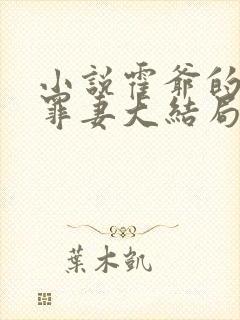 小説霍爺的
罪妻大結局
葉木凱